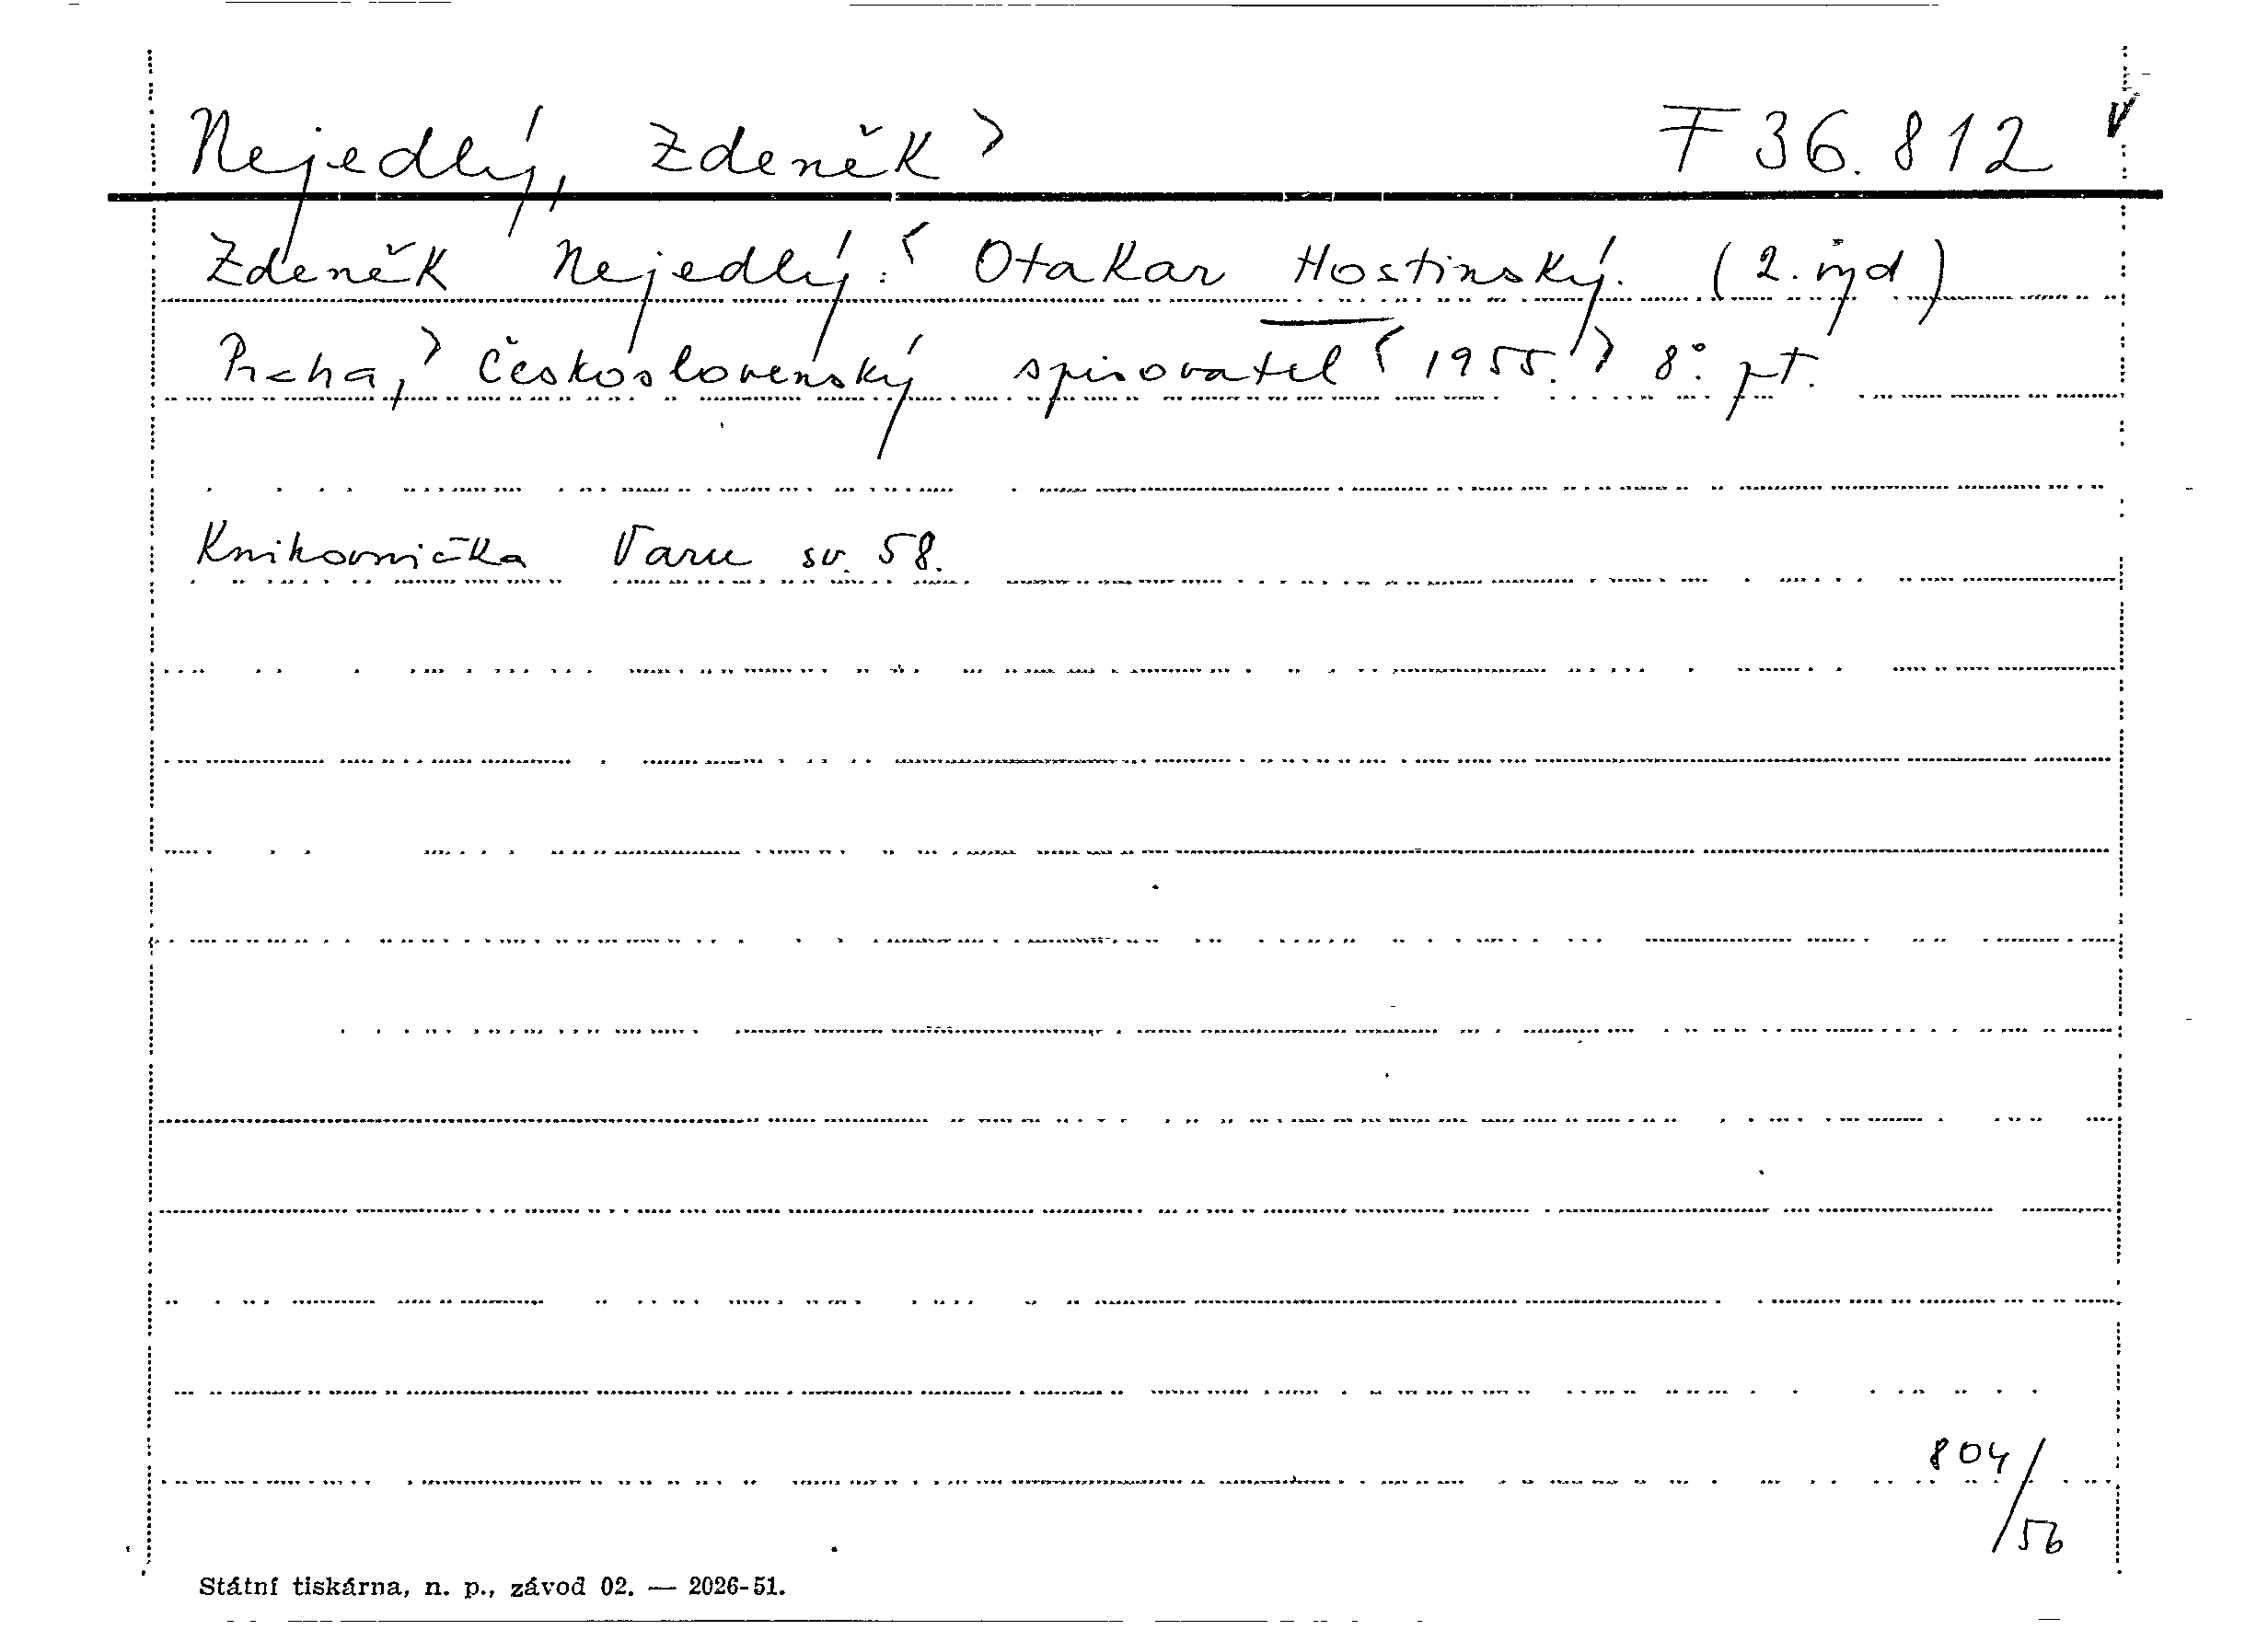 Nejedlý, Zdeněk > F 36.812 V
Zdeněk Nejedlý: < Otakar Hostinský. (2. vyd)
Praha, > Československý spisovatel < 1955. > 8°. pt.
Knihovnička Varu sv. 58.
804/56
Státní tiskárna, n. p., závod 02. — 2026-51.